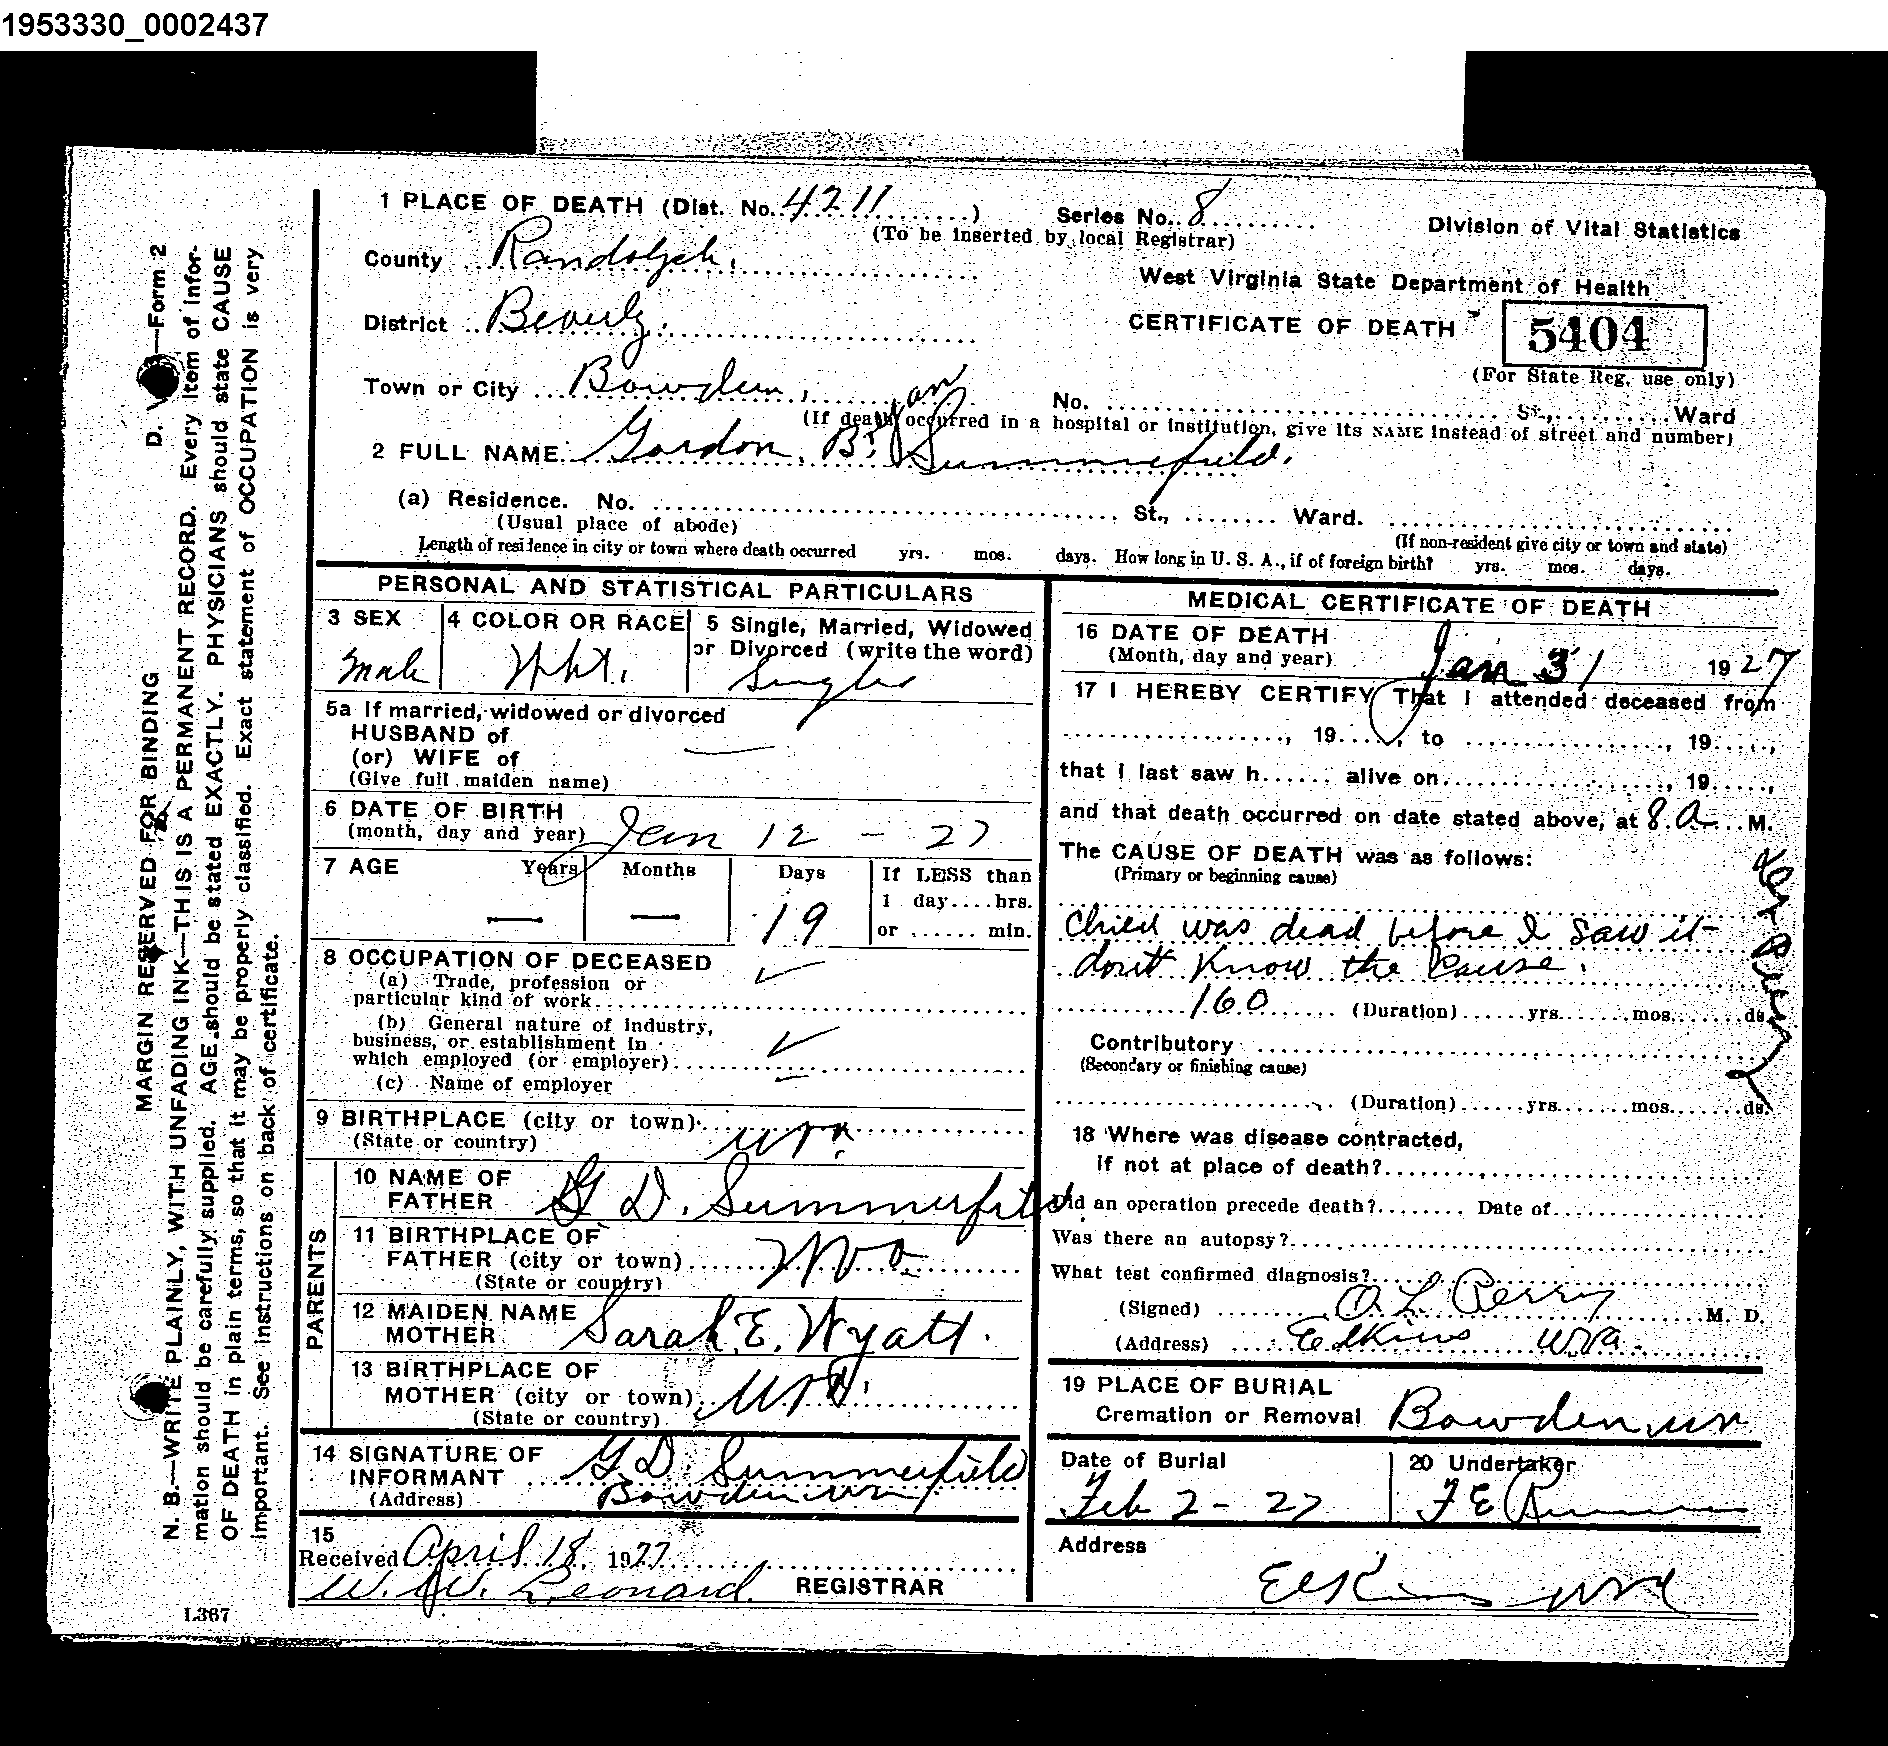 1953330_0002437
1 PLACE OF DEATH (Dist. No. 4211 ) Series No. 8
(To be inserted by local Registrar)
Division of Vital Statistics
County Randolph.
West Virginia State Department of Health
District Beverly.
CERTIFICATE OF DEATH 5404
(For State Reg. use only)
Town or City Bowden,
No. St., Ward
(If death occurred in a hospital or institution, give its NAME instead of street and number)
2 FULL NAME Gordon Bryan Summefield.
(a) Residence. No. St., Ward.
(Usual place of abode) (If non-resident give city or town and state)
Length of residence in city or town where death occurred yrs. mos. days. How long in U. S. A., if of foreign birth? yrs. mos. days.
PERSONAL AND STATISTICAL PARTICULARS
3 SEX 4 COLOR OR RACE 5 Single, Married, Widowed
or Divorced (write the word)
Male Wht. Single
5a If married, widowed or divorced
HUSBAND of
(or) WIFE of —
(Give full maiden name)
6 DATE OF BIRTH
(month, day and year) Jan 12 - 27
7 AGE Years Months Days If LESS than
1 day....hrs.
— — 19 or ...... min.
8 OCCUPATION OF DECEASED
(a) Trade, profession or
particular kind of work
(b) General nature of industry,
business, or establishment in
which employed (or employer)
(c) Name of employer —
9 BIRTHPLACE (city or town)
(State or country) WVa.
PARENTS
10 NAME OF
FATHER G D. Summerfield
11 BIRTHPLACE OF
FATHER (city or town) WVa
(State or country)
12 MAIDEN NAME
MOTHER Sarah E. Wyatt.
13 BIRTHPLACE OF
MOTHER (city or town) WVa.
(State or country)
14 SIGNATURE OF
INFORMANT G.D. Summerfield
(Address) Bowden WVa
15
Received April 18 1927
W. W. Leonard REGISTRAR
MEDICAL CERTIFICATE OF DEATH
16 DATE OF DEATH
(Month, day and year) Jan 31 1927
17 I HEREBY CERTIFY That I attended deceased from
, 19....., to , 19.....,
that I last saw h...... alive on , 19.....,
and that death occurred on date stated above, at 8 A M.
The CAUSE OF DEATH was as follows:
(Primary or beginning cause)
Child was dead before I saw it
don't know the cause.
160 (Duration) yrs. mos. ds.
Contributory
(Secondary or finishing cause)
(Duration) yrs. mos. ds.
18 Where was disease contracted,
if not at place of death?
Did an operation precede death? Date of
Was there an autopsy?
What test confirmed diagnosis?
(Signed) O. L. Perry M. D.
(Address) Elkins WVa.
19 PLACE OF BURIAL
Cremation or Removal Bowden, WVa
Date of Burial 20 Undertaker
Feb 2 - 27 F E
Address
Elkins WVa
D. V. S.—Form 2
MARGIN RESERVED FOR BINDING
N. B.—WRITE PLAINLY, WITH UNFADING INK—THIS IS A PERMANENT RECORD. Every item of infor-
mation should be carefully supplied. AGE should be stated EXACTLY. PHYSICIANS should state CAUSE
OF DEATH in plain terms, so that it may be properly classified. Exact statement of OCCUPATION is very
important. See instructions on back of certificate.
L367